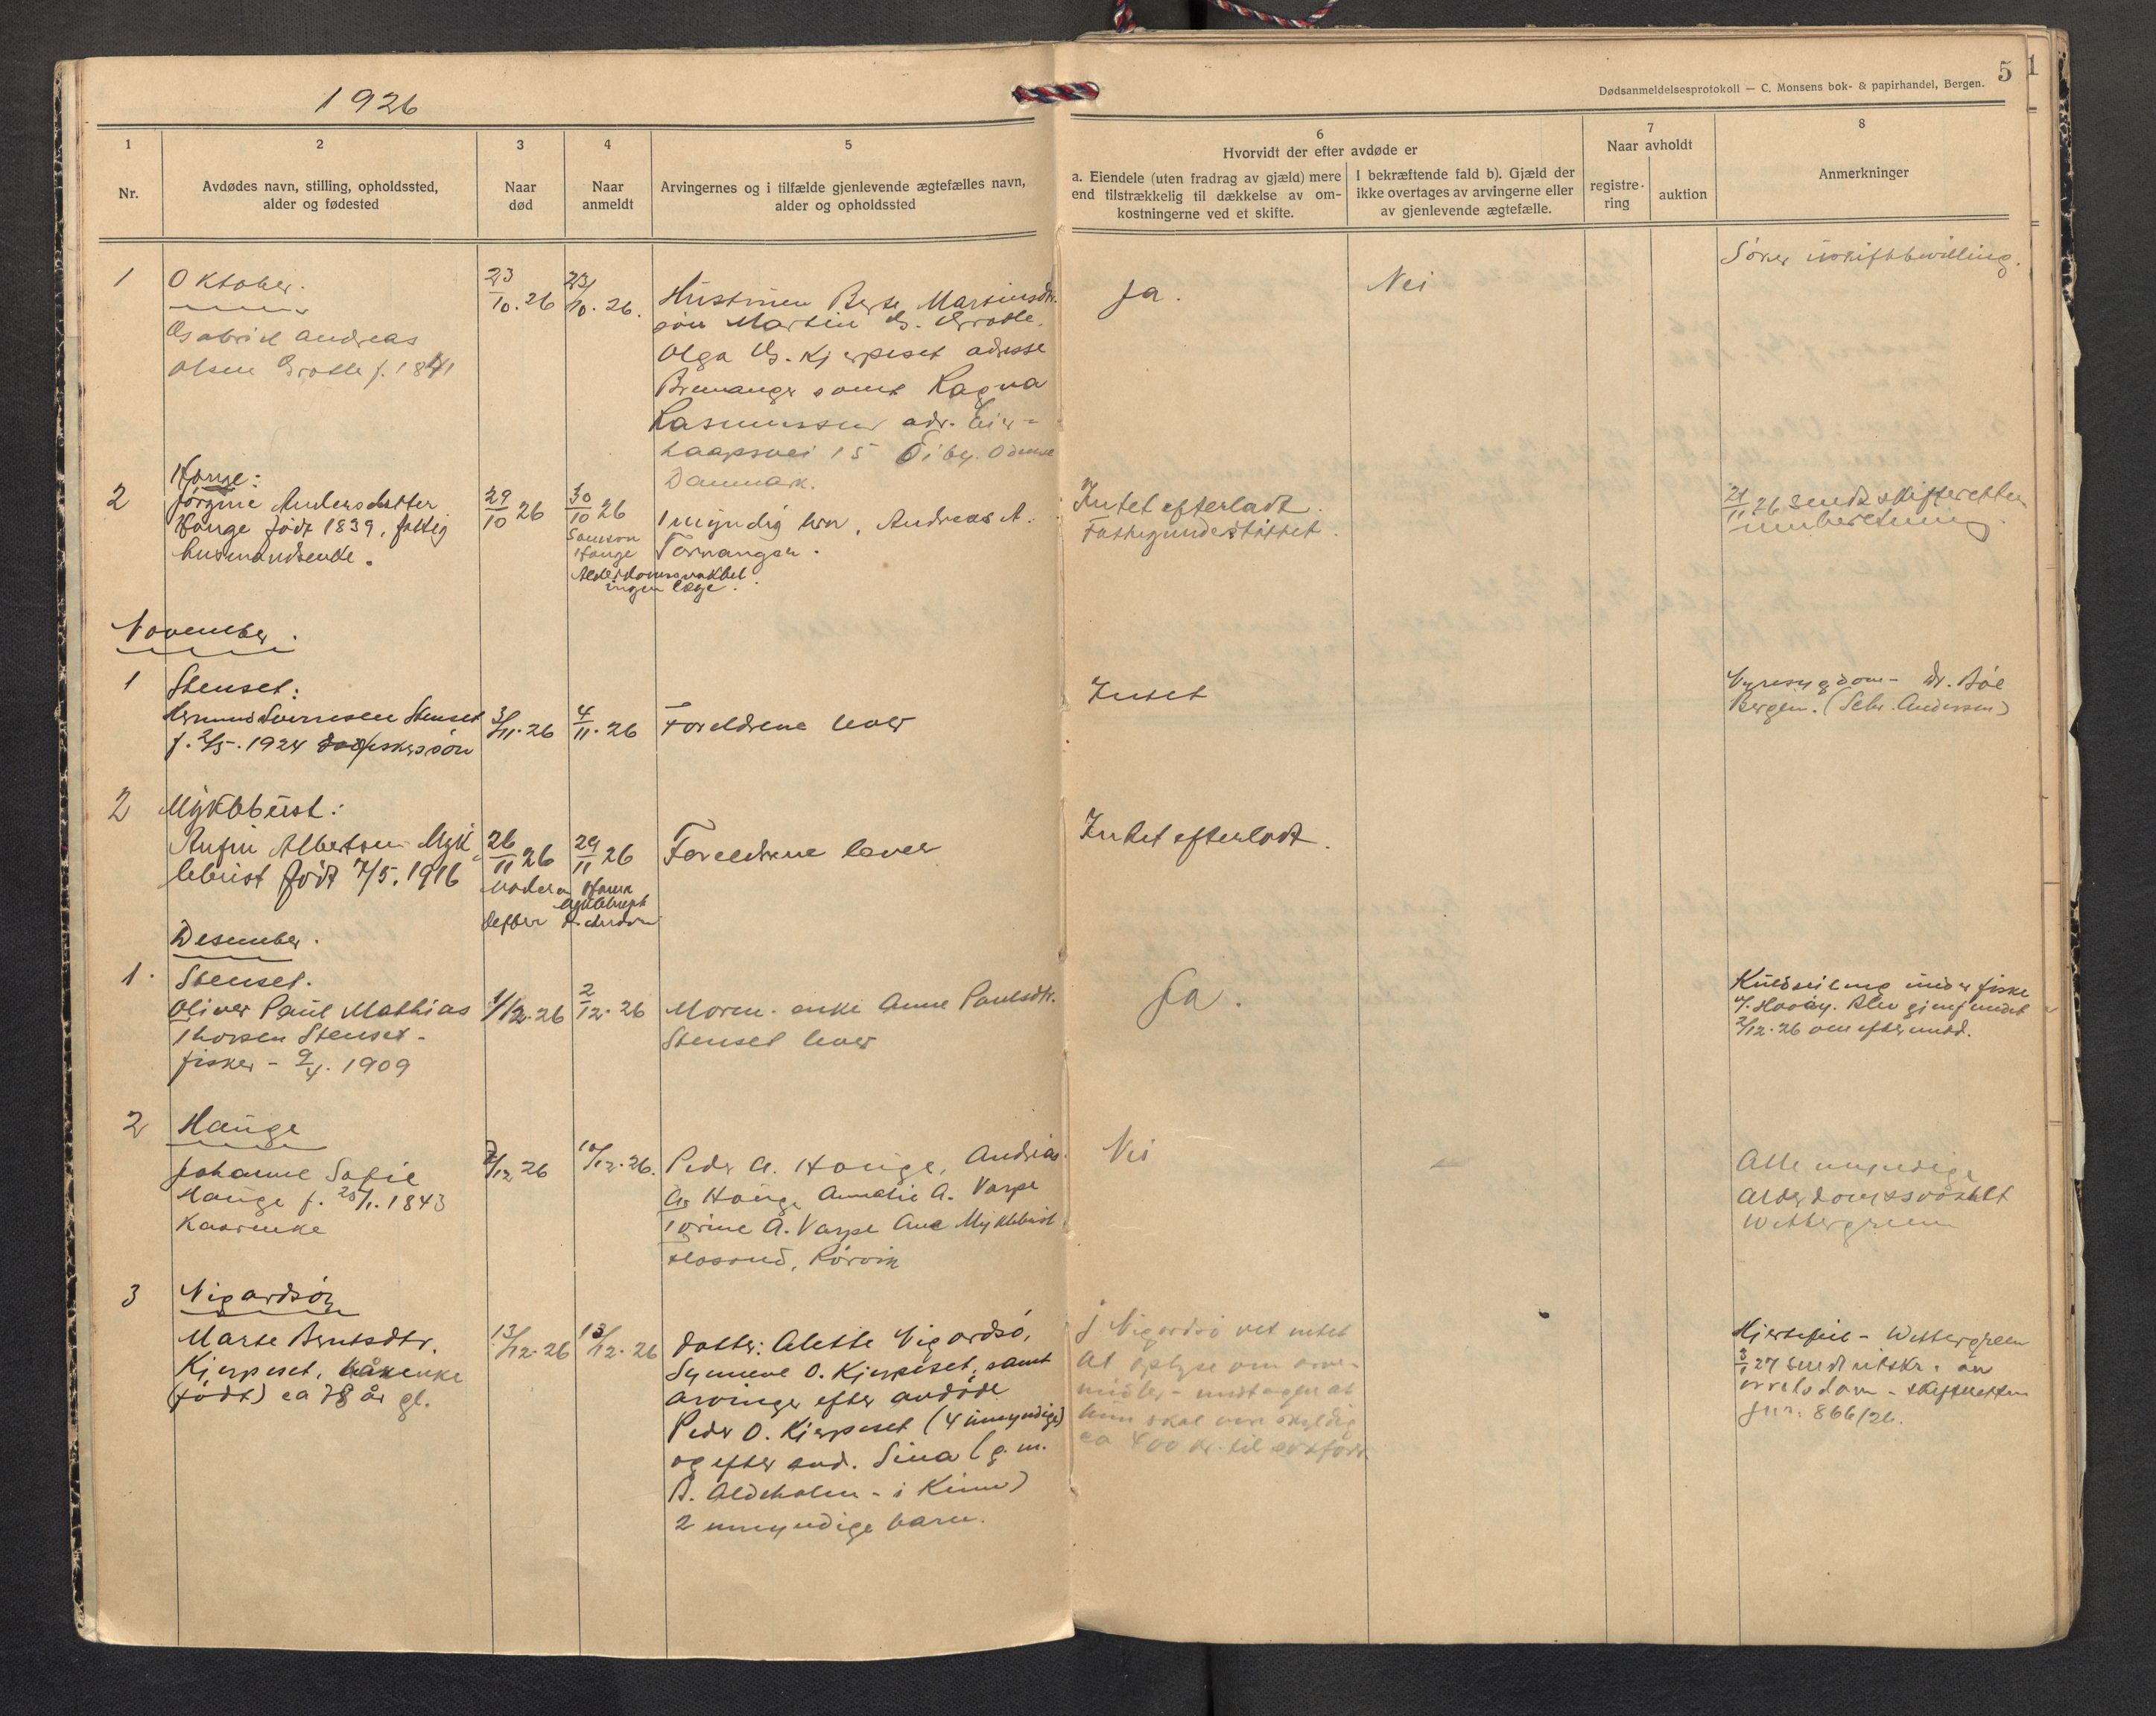 1926
5
1
Dødsanmeldelsesprotokoll — C. Monsens bok- & papirhandel, Bergen.
1
Nr.
2
Avdødes navn, stilling, opholdssted,
alder og fødested
3
Naar
død
4
Naar
anmeldt
5
Arvingernes og i tilfælde gjenlevende ægtefælles navn,
alder og opholdssted
6
Hvorvidt der efter avdøde er
a. Eiendele (uten fradrag av gjæld) mere
end tilstrækkelig til dækkelse av om-
kostningerne ved et skifte.
I bekræftende fald b). Gjæld der
ikke overtages av arvingerne eller
av gjenlevende ægtefælle.
7
Naar avholdt
registre-
ring
auktion
8
Anmerkninger
1
Oktober.
Gabriel Andreas
Olsen Grotle f. 1841
23/10.26
23/10.26.
Hustruen Berte Martinsdtr.
søn Martin G. Grotle.
Olga G. Kjerpeset adresse
Bremanger samt Ragna
Rasmussen adr. Eier-
haapsvei 15 Odense
Danmark.
Ja.
Nei
Søker uskiftbevilling.
2
Hauge:
Jørgine Andersdatter
Hauge født 1839, fattig
husmandsenke.
29/10 26
30/10 26
Samson
Hauge
Alderdomssvakhet
ingen læge.
1 myndig søn, Andreas A.
Intet efterladt.
Fattigunderstøttet.
21/11 26 sendt skifteretten
innberetning.
November.
1
Stenset:
Stenset
f. 2/5.1924 fiskersøn
3/11.26
4/11.26
Foreldrene lever
Intet
Nyresygdom - Dr. Bøe
Bergen. (Andersen)
2
Myklebust:
Anfin Albertsen Myk-
lebust født 7/5.1916
26/11 26
29/11 26
Foreldrene lever
Intet efterladt.
Desember.
1.
Stenset.
Oliver Paul Mathias
Thorsen Stenset -
fisker - 9/4. 1909
1/12.26
2/12.26
Moren. enke Anne Paulsdtr.
Stenset lever
Ja.
Kuldseiling under fiske
v/. Hovöy. Blev gjenfundet
2/12.26
2
Hauge
Johanne Sofie
Hauge f. 25/1.1843
Kaarenke
7/12 26
10/12.26.
Peder A. Hauge, Andreas
A. Hauge Annette A. Varpe
Torine A. Varpe Ane Myklebust
Rørvik
Nei
Alle myndige
Alderdomssvakhet
Wettergreen
3
Nigardsøy
Marte Berntsdtr.
Kjerpeset, kårenke
(født) ca 78 år gl.
13/12.26
13/12.26
datter: Alette Nigardsö,
Synneve O. Kjerpeset, samt
arvinger efter avdöde
Peder O. Kjerpeset (4 umyndige)
og efter avd. Sina (g. m.
A. Aldeholm - i Kinn)
2 umyndige barn.
J Nigardsö vet intet
at oplyse om arve-
midler - antager at
hun skal være skyldig
ca 400 kr. til
Hjertefeil - Wettergreen
3/1 27 sendt utskr. av
skifteretten
jnr: 866/26.